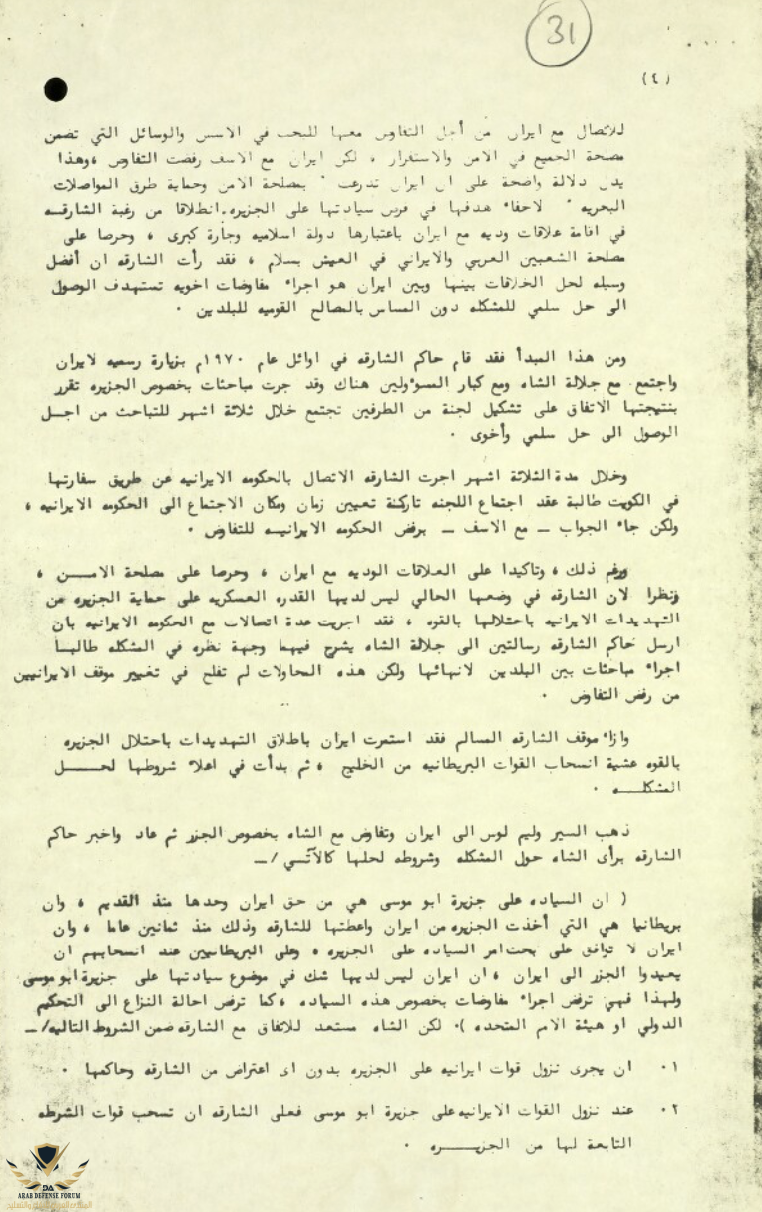 31
(٤)
للاتصال مع ايران من أجل التفاوض معها للبحث في الاسس والوسائل التي تضمن
مصحة الجميع في الامن والاستقرار ، لكن ايران مع الاسف رفضت التفاوض ،وهذا
يدل دلالة واضحة على ان ايران تذرعت " بمصلحة الامن وحماية طرق المواصلات
البحريه " لاخفاء هدفها في فرض سيادتها على الجزيره.انطلاقا من رغبة الشارقه
في اقامة علاقات وديه مع ايران باعتبارها دولة اسلاميه وجارة كبرى ، وحرصا على
مصلحة الشعبين العربي والايراني في العيش بسلام ، فقد رأت الشارقه ان أفضل
وسيله لحل الخلافات بينها وبين ايران هو اجراء مفاوضات اخويه تستهدف الوصول
الى حل سلمي للمشكله دون المساس بالمصالح القوميه للبلدين .
ومن هذا المبدأ فقد قام حاكم الشارقه في اوائل عام ١٩٧٠م بزيارة رسميه لايران
واجتمع مع جلالة الشاه ومع كبار المسوءولين هناك وقد جرت مباحثات بخصوص الجزيره تقرر
بنتيجتها الاتفاق على تشكيل لجنة من الطرفين تجتمع خلال ثلاثة اشهر للتباحث من اجل
الوصول الى حل سلمي وأخوى .
وخلال مدة الثلاثة اشهر اجرت الشارقه الاتصال بالحكومه الايرانيه عن طريق سفارتها
في الكويت طالبة عقد اجتماع اللجنه تاركنة تعيين زمان ومكان الاجتماع الى الحكومه الايرانيه ،
ولكن جاء الجواب ــ مع الاسف ــ برفض الحكومه الايرانيه للتفاوض .
ورغم ذلك ، وتاكيدا على العلاقات الوديه مع ايران ، وحرصا على مصلحة الامـــن ،
ونظرا لان الشارقه في وضعها الحالي ليس لديها القدره العسكريه على حماية الجزيره من
التهديدات الايرانيه باحتلالها بالقوه ، فقد اجريت عدة اتصالات مع الحكومه الايرانيه بان
ارسل حاكم الشارقه رسالتين الى جلالة الشاه يشرح فيهما وجهة نظره في المشكله طالبا
اجراء مباحثات بين البلدين لانهائها ولكن هذه المحاولات لم تفلح في تغيير موقف الايرانيين
من رفض التفاوض .
وازاء موقف الشارقه المسالم فقد استمرت ايران باطلاق التهديدات باحتلال الجزيره
بالقوه عشية انسحاب القوات البريطانيه من الخليج ، ثم بدأت في اعلان شروطها لحـــل
المشكلــه .
ذهب السير وليم لوس الى ايران وتفاوض مع الشاه بخصوص الجزر ثم عاد واخبر حاكم
الشارقه برأى الشاه حول المشكله وشروطه لحلها كالآتــي /ــ
( ان السياده على جزيرة ابو موسى هي من حق ايران وحدها منذ القديم ، وان
بريطانيا هي التي أخذت الجزيره من ايران واعطتها للشارقه وذلك منذ ثمانين عاما ، وان
ايران لا توافق على بحث امر السياده على الجزيره ، وعلى البريطانيين عند انسحابهم ان
يعيدوا الجزر الى ايران ، ان ايران ليس لديها شك في موضوع سيادتها على جزيرة ابو موسى
ولهذا فهي ترفض اجراء مفاوضات بخصوص هذه السياده ،كما ترفض احالة النزاع الى التحكيم
الدولي او هيئة الامم المتحده ). لكن الشاه مستعد للاتفاق مع الشارقه ضمن الشروط التاليه/ــ
١. ان يجرى نزول قوات ايرانيه على الجزيره بدون اى اعتراض من الشارقه وحاكمها .
٢. عند نزول القوات الايرانيه على جزيرة ابو موسى فعلى الشارقه ان تسحب قوات الشرطه
التابعة لها من الجزيــــره .
DA
ARAB DEFENSE FORUM